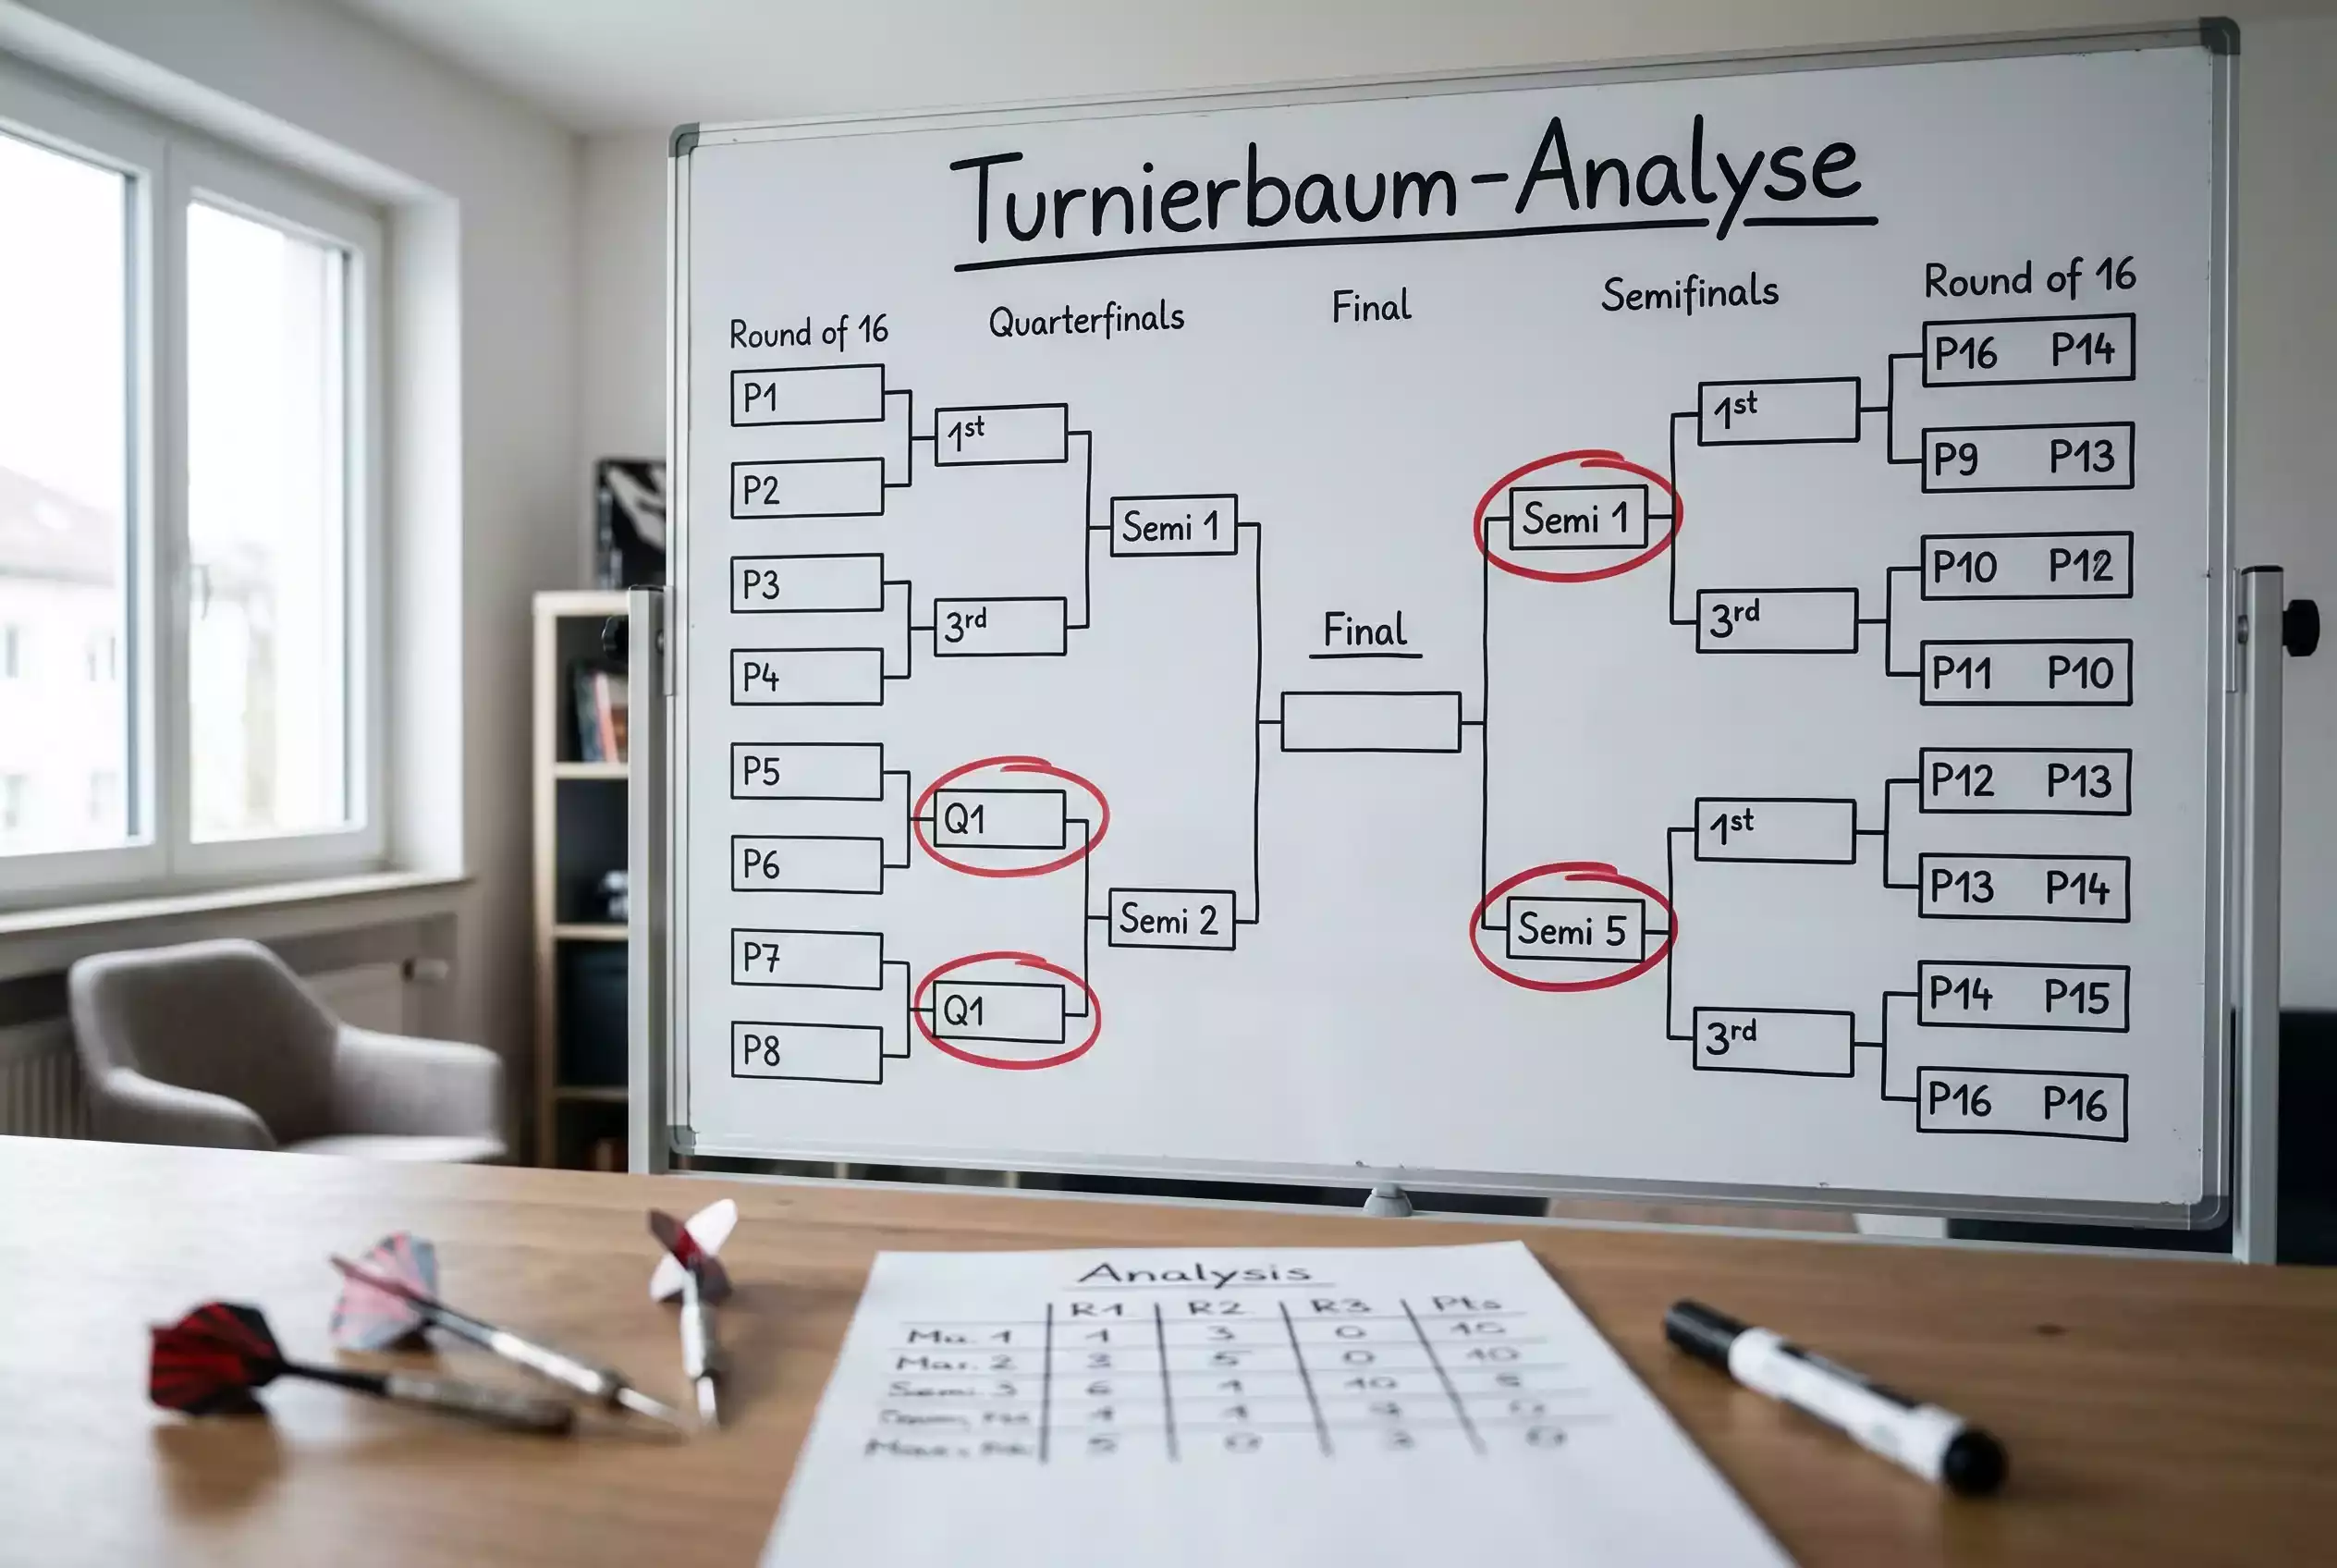 Turnierbaum-Analyse
Round of 16
Quarterfinals
Final
Semifinals
Round of 16
P1
P2
P3
P4
P5
P6
P7
P8
1st
3rd
Q1
Q1
Semi 1
Semi 2
Final
Semi 1
Semi 5
1st
3rd
1st
3rd
P16 P14
P9 P13
P10 P12
P11 P10
P12 P13
P13 P14
P14 P15
P16 P16
Analysis
R1 R2 R3 Pts
1 3 0
Mar. 2 3 5 0 10
6 1 10
1 1
5 0 3